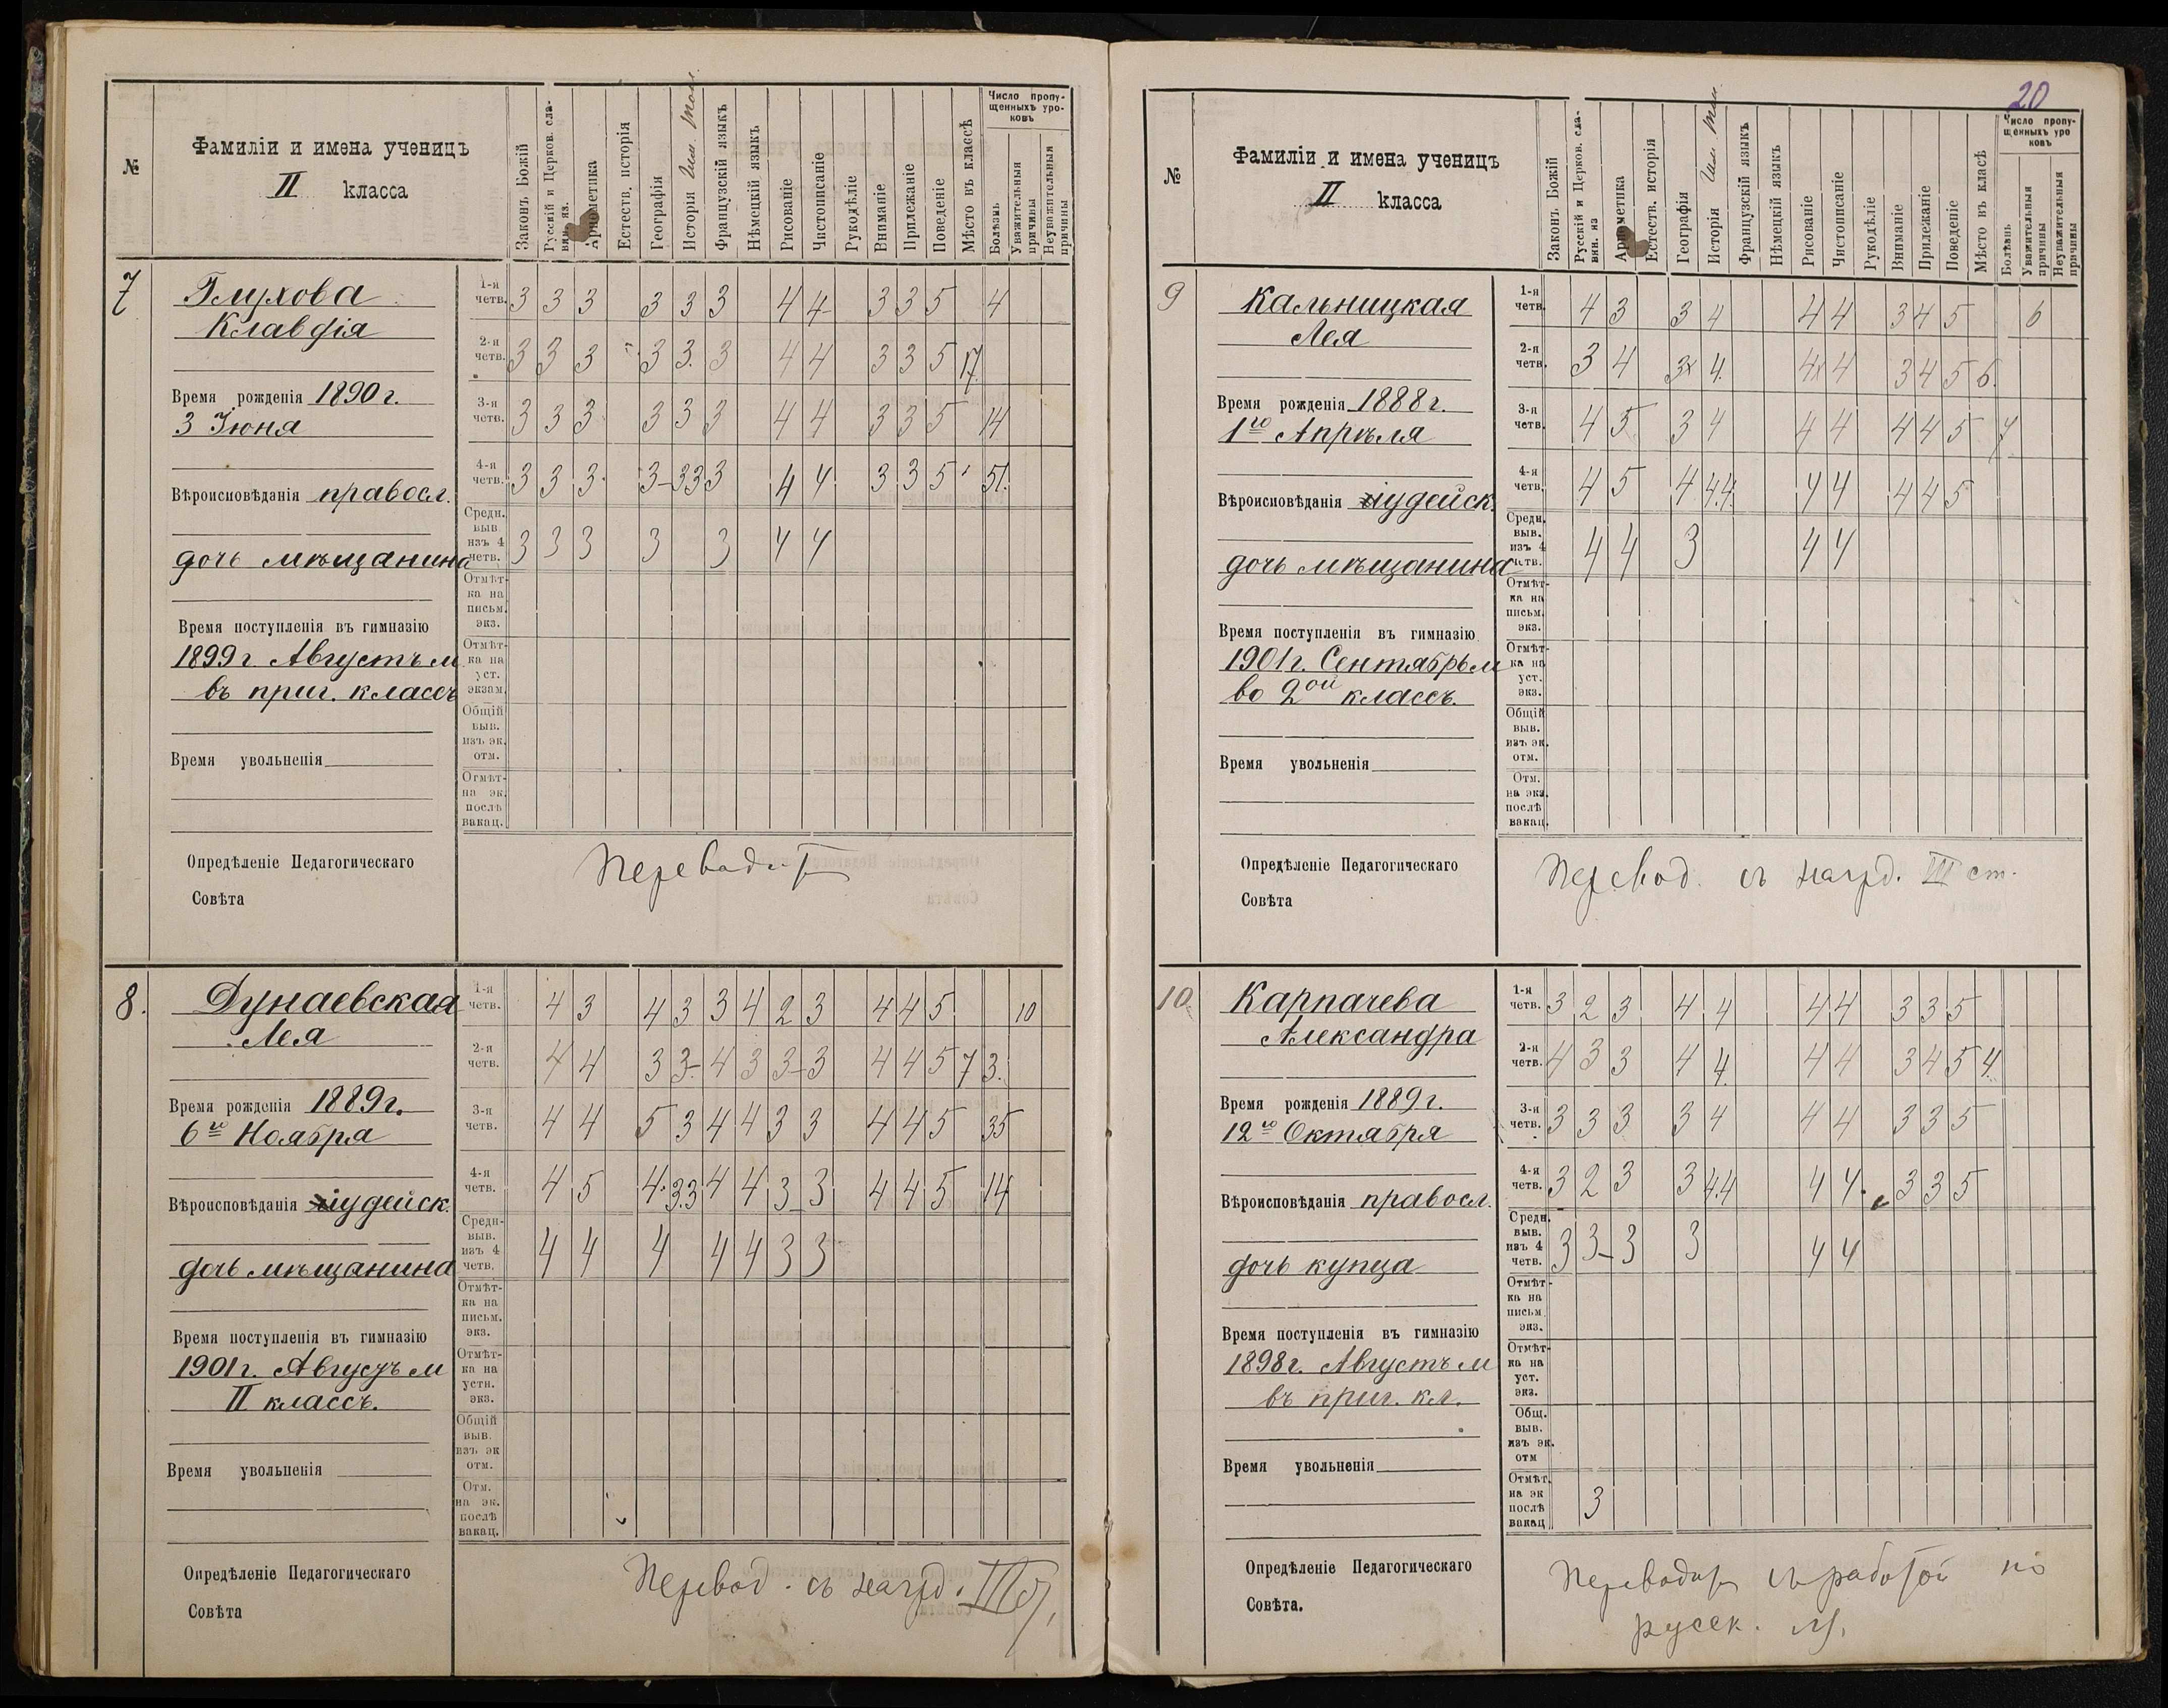 №
Фамиліи и имена ученицъ
II класса
Законъ Божій
Русскій и Церков. сла-
вян. яз.
Ариѳметика
Естеств. исторія
Географія
Исторія
Французскій языкъ
Нѣмецкій языкъ
Рисованіе
Чистописаніе
Рукодѣліе
Вниманіе
Прилежаніе
Поведеніе
Мѣсто въ классѣ
Число пропу-
щенныхъ уро-
ковъ
Болѣзнь
Уважительныя
причины
Неуважительныя
причины
7
Глухова
Клавдія
Время рожденія 1890 г.
3 Іюня
Вѣроисповѣданія правосл.
дочь мѣщанина
Время поступленія въ гимназію
1899 г. Августъ м
въ приг. классъ
Время увольненія
1-я четв. 3 3 3 3 3 3 4 4 3 3 5 4
2-я четв. 3 3 3 3 3. 3 4 4 3 3 5 17.
3-я четв. 3 3 3 3 3 3 4 4 3 3 5 14
4-я четв. 3 3 3 3 33 3 4 4 3 3 5 51.
Средн. выв. изъ 4 четв. 3 3 3 3 3 4 4
Отмѣт-
ка на
письм.
экз.
Отмѣт-
ка на
уст.
экзам.
Общій
выв.
изъ эк.
отм.
Отмѣт-
на эк.
послѣ
вакац.
Опредѣленіе Педагогическаго
Совѣта
Переводит
8.
Дунаевская
Лея
Время рожденія 1889 г.
6го Ноября
Вѣроисповѣданія іудейск.
дочь мѣщанина
Время поступленія въ гимназію
1901 г. Августъ м
II классъ.
Время увольненія
1-я четв. 4 3 4 3 3 4 2 3 4 4 5 10
2-я четв. 4 4 3 3- 4 3 3- 3 4 4 5 7 3.
3-я четв. 4 4 5 3 4 4 3 3 4 4 5 35
4-я четв. 4 5 4. 3.3 4 4 3 3 4 4 5 14
Средн- выв. изъ 4 четв. 4 4 4 4 4 3 3
Отмѣт-
ка на
письм.
экз.
Отмѣт-
ка на
устн.
экз.
Общій
выв.
изъ эк
отм.
Отм.
на эк.
послѣ
вакац.
Опредѣленіе Педагогическаго
Совѣта
Перевод. съ нагрд. III ст.
20
№
Фамиліи и имена ученицъ
II класса
Законъ Божій
Русскій и Церков. сла-
вян. яз
Ариѳметика
Естеств. исторія
Географія
Исторія
Французскій языкъ
Нѣмецкій языкъ
Рисованіе
Чистописаніе
Рукодѣліе
Вниманіе
Прилежаніе
Поведеніе
Мѣсто въ классѣ
Число пропу-
щенныхъ уро
ковъ
Болѣзнь
Уважительныя
причины
Неуважительныя
причины
9
Кальницкая
Лея
Время рожденія 1888 г.
1го Апрѣля
Вѣроисповѣданія іудейск.
дочь мѣщанина
Время поступленія въ гимназію
1901 г. Сентябрь м
во 2ой классъ.
Время увольненія
1-я четв. 4 3 3 4 4 4 3 4 5 6
2-я четв. 3 4 3x 4. 4x 4 3 4 5 6.
3-я четв. 4 5 3 4 4 4 4 4 5 7
4-я четв. 4 5 4 4.4. 4 4 4 4 5
Средн. выв. изъ 4 четв. 4 4 3 4 4
Отмѣт-
ка на
письм.
экз.
Отмѣт-
ка на
уст.
экз.
Общій
выв.
изъ эк.
отм.
Отм.
на экз.
послѣ
вакац.
Опредѣленіе Педагогическаго
Совѣта
Перевод. съ нагрд. III ст.
10.
Карпачева
Александра
Время рожденія 1889 г.
12го Октября
Вѣроисповѣданія правосл.
дочь купца
Время поступленія въ гимназію
1898 г. Августъ м
въ приг. кл.
Время увольненія
1-я четв. 3 2 3 4 4 4 4 3 3 5
2-я четв. 4 3 3 4 4. 4 4 3 4 5 4.
3-я четв. 3 3 3 3 4 4 4 3 3 5
4-я четв. 3 2 3 3 4.4 4 4. 3 3 5
Средн. выв. изъ 4 четв. 3 3- 3 3 4 4
Отмѣт-
ка на
письм.
экз.
Отмѣт-
ка на
уст.
экз.
Общ.
выв.
изъ эк.
отм
Отмѣт.
на эк
послѣ
вакац 3
Опредѣленіе Педагогическаго
Совѣта.
Переводит съ работой по
русск. яз.